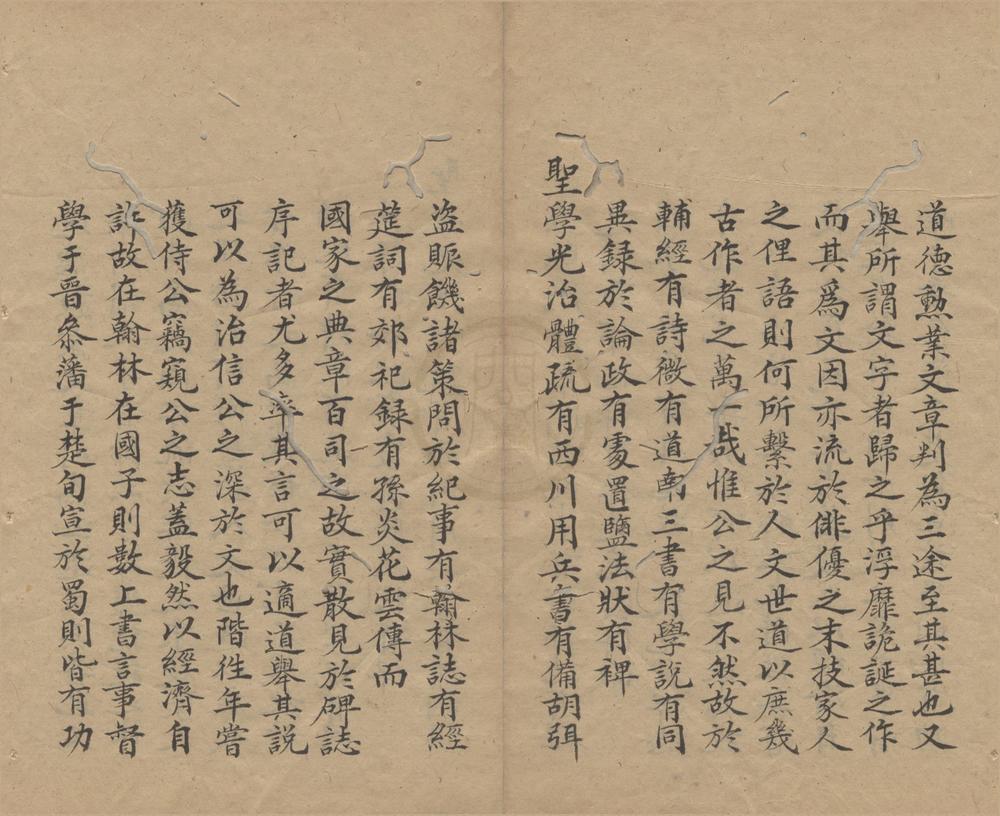 道德勲業文章判為三途至其甚也又
舉所謂文字者歸之乎浮靡詭誕之作
而其爲文因亦流於俳優之末技家人
之俚語則何所繫於人文世道以庶幾
古作者之萬一哉惟公之見不然故於
輔經有詩微有道南三書有學說有同
異録於論政有處置鹽法狀有裨
聖學光治體疏有西川用兵書有備胡弭
盜賑饑諸策問於紀事有翰林誌有經
筵詞有郊祀録有孫炎花雲傳而
國家之典章百司之故實散見於碑誌
序記者尤多率其言可以適道舉其説
可以為治信公之深於文也階徃年嘗
獲侍公竊窺公之志蓋毅然以經濟自
許故在翰林在國子則數上書言事督
學于晉叅藩于楚旬宣於蜀則皆有功